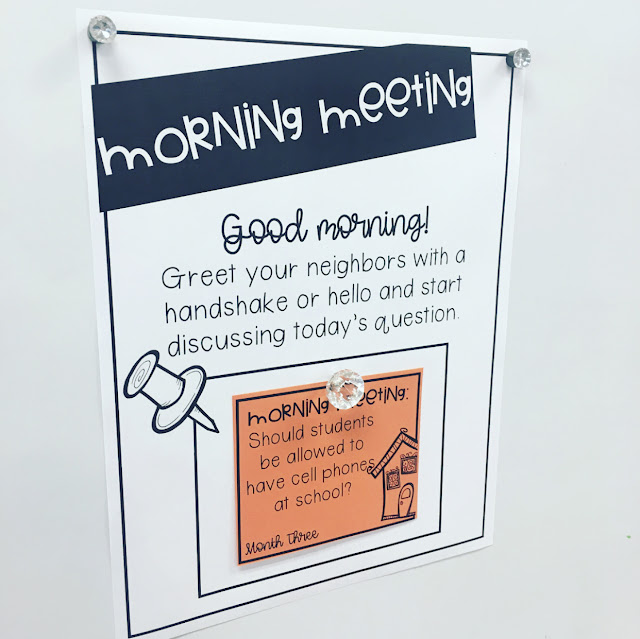 morning meeting
Good morning!
Greet your neighbors with a
handshake or hello and start
discussing today's question.
morning meeting:
Should students
be allowed to
have cell phones
at school?
Month Three